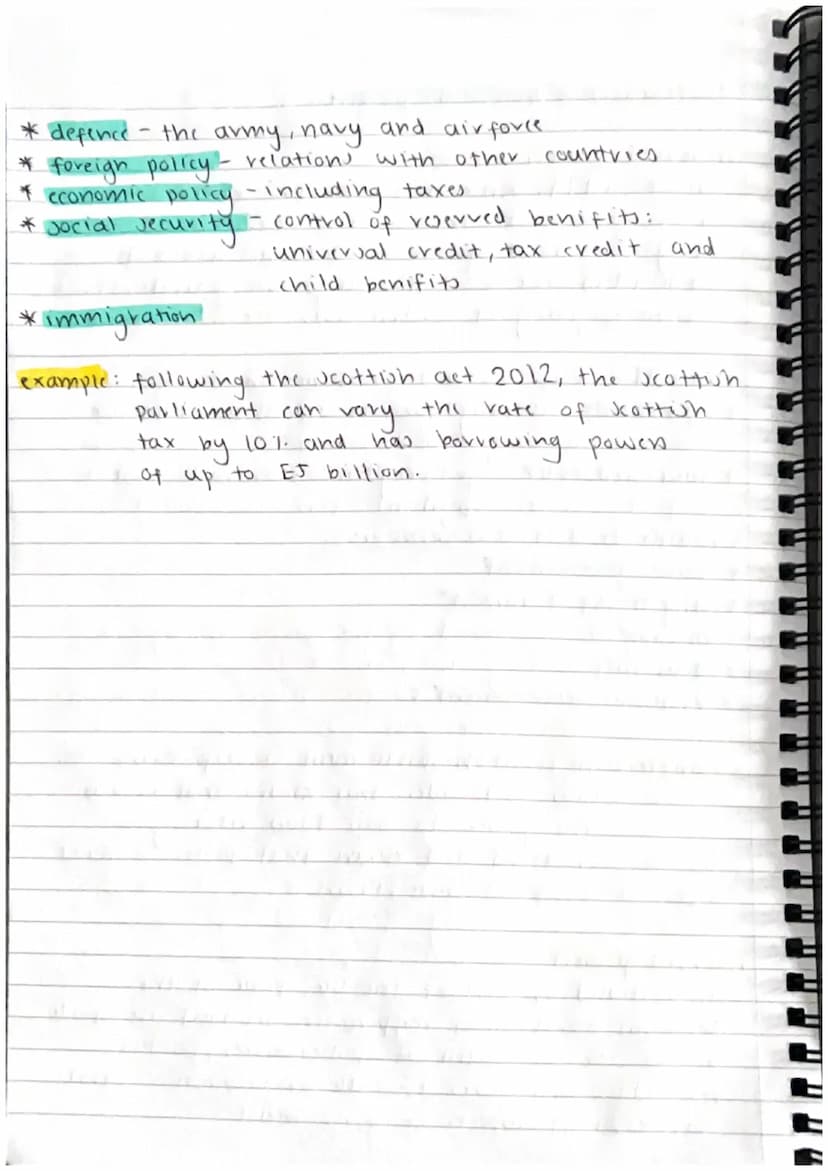 * defence - the army, navy and airforce
* foreign policy - relations with other countries
* economic policy - including taxes
* social security - control of reserved benifits:
universal credit, tax credit and
child benifits
* immigration
example: following the scottish act 2012, the scottish
parliament can vary the rate of scottish
tax by 10% and has borrowing powers
of up to £5 billion.